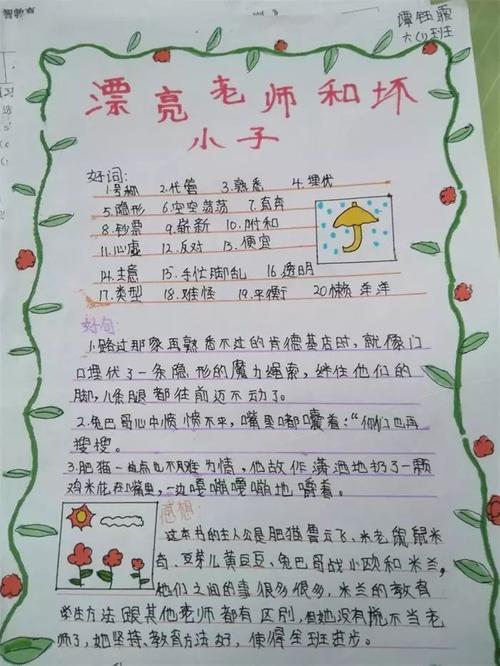 智教育
谭钰霖
六(1)班
漂亮老师和坏
小子
好词:
1.号称 2.代管 3.熟悉 4.埋伏
5.隐形 6.空空荡荡 7.直奔
8.钞票 9.崭新 10.附和
11.心虚 12.反对 13.便宜
14.主意 15.手忙脚乱 16.透明
17.类型 18.难怪 19.平衡 20.懒洋洋
好句:
1.路过那家再熟悉不过的肯德基店时,就像门
口埋伏了一条隐形的魔力绳索,绊住他们的
脚,几条腿都往前迈不动了。
2.兔巴哥心中愤愤不平,嘴里嘟囔着:“你们也再
搜搜。
3.肥猫一点也不难为情,他故作潇洒地扔了一颗
鸡米花在嘴里,一边嘎嘣嘎嘣地嚼着。
感想:
这本书的主人公是肥猫鲁云飞、米老鼠鼠米
奇、豆芽儿黄豆豆、兔巴哥战小欧和米兰,
他们之间的事很多很多,米兰的教育
学生方法跟其他老师都有区别,但她没有说不当老
师了,她坚持、教育方法好,使得全班进步。